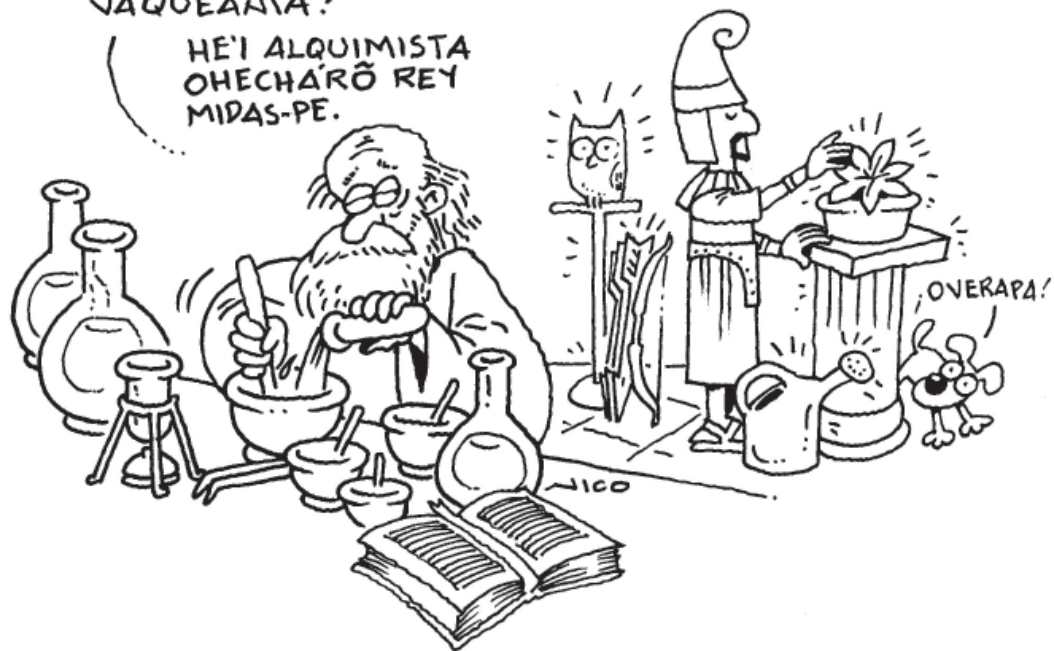 HE'I ALQUIMISTA
OHECHÁRÕ REY
MIDAS-PE.
OVERAPA!
NICO